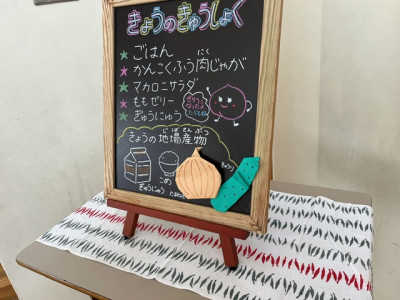 きょうのきゅうしょく
★ごはん
★かんこくふう肉じゃが
にく
★マカロニサラダ
★ももゼリー
★ぎゅうにゅう
きょうの地場産物
じばさんぶつ
ぎゅうにゅう
こめ
たまねぎ
きゅうり